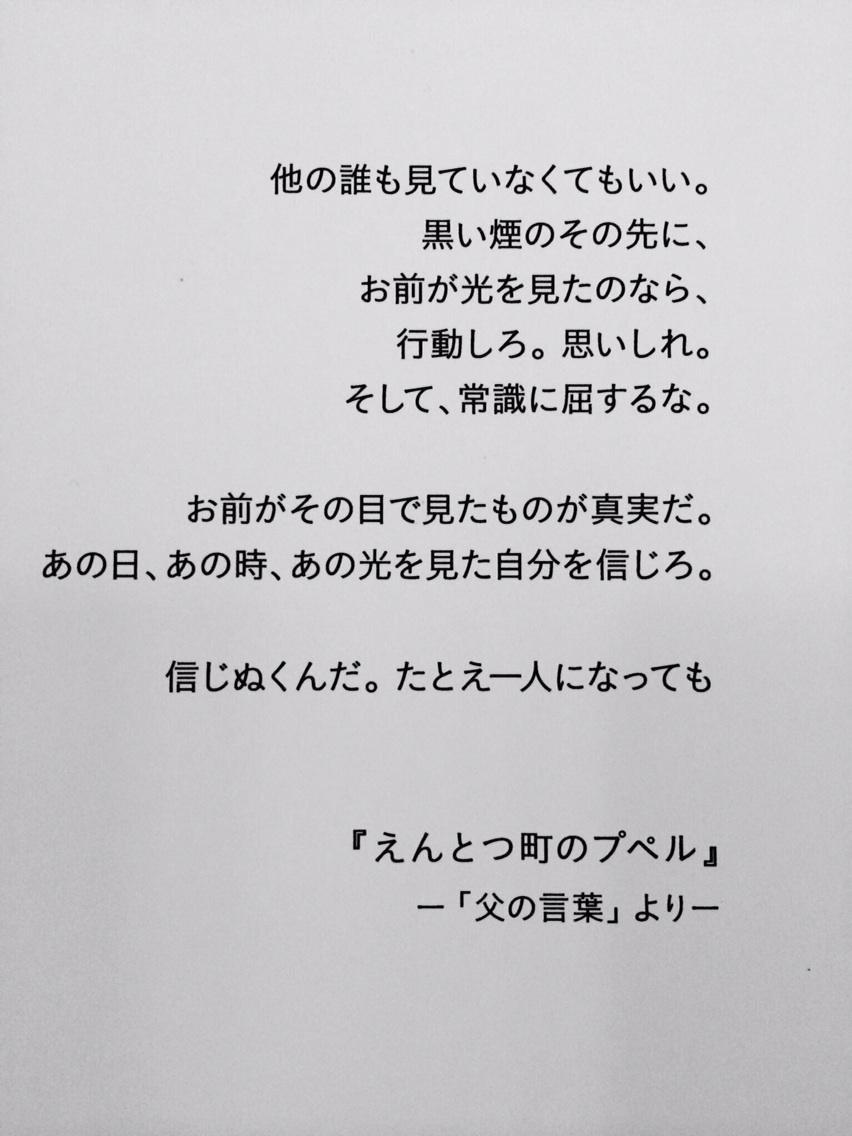 他の誰も見ていなくてもいい。
黒い煙のその先に、
お前が光を見たのなら、
行動しろ。思いしれ。
そして、常識に屈するな。
お前がその目で見たものが真実だ。
あの日、あの時、あの光を見た自分を信じろ。
信じぬくんだ。たとえ一人になっても
『えんとつ町のプペル』
ー「父の言葉」よりー